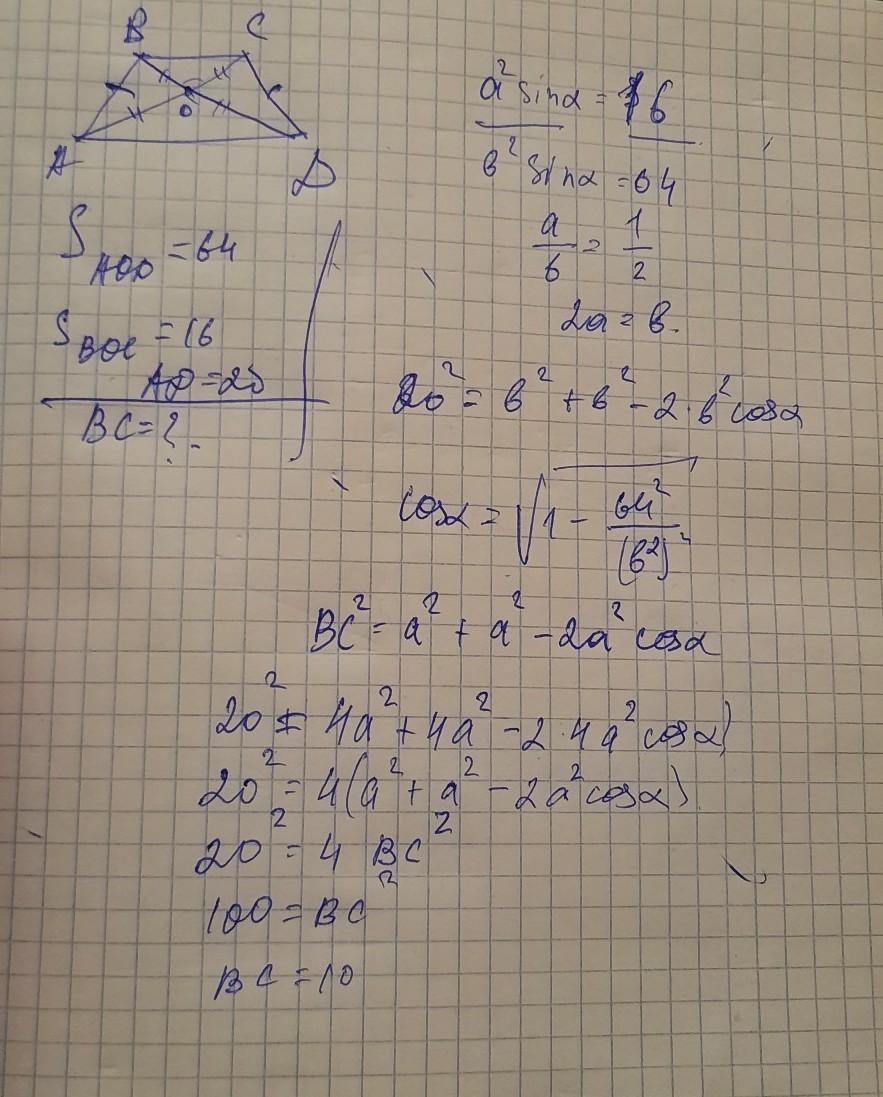 B C
O
A D
S_{AOD} = 64
S_{BOC} = 16
AD = 20
BC = ? -
a² sinα = 16
b² sinα = 64
a/b = 1/2
2a = b.
20² = b² + b² - 2·b² cosα
cosα = √(1 - 64²/(b²)²)
BC² = a² + a² - 2a² cosα
20² = 4a² + 4a² - 2·4a² cosα)
20² = 4(a² + a² - 2a² cosα)
20² = 4 BC²
100 = BC²
BC = 10